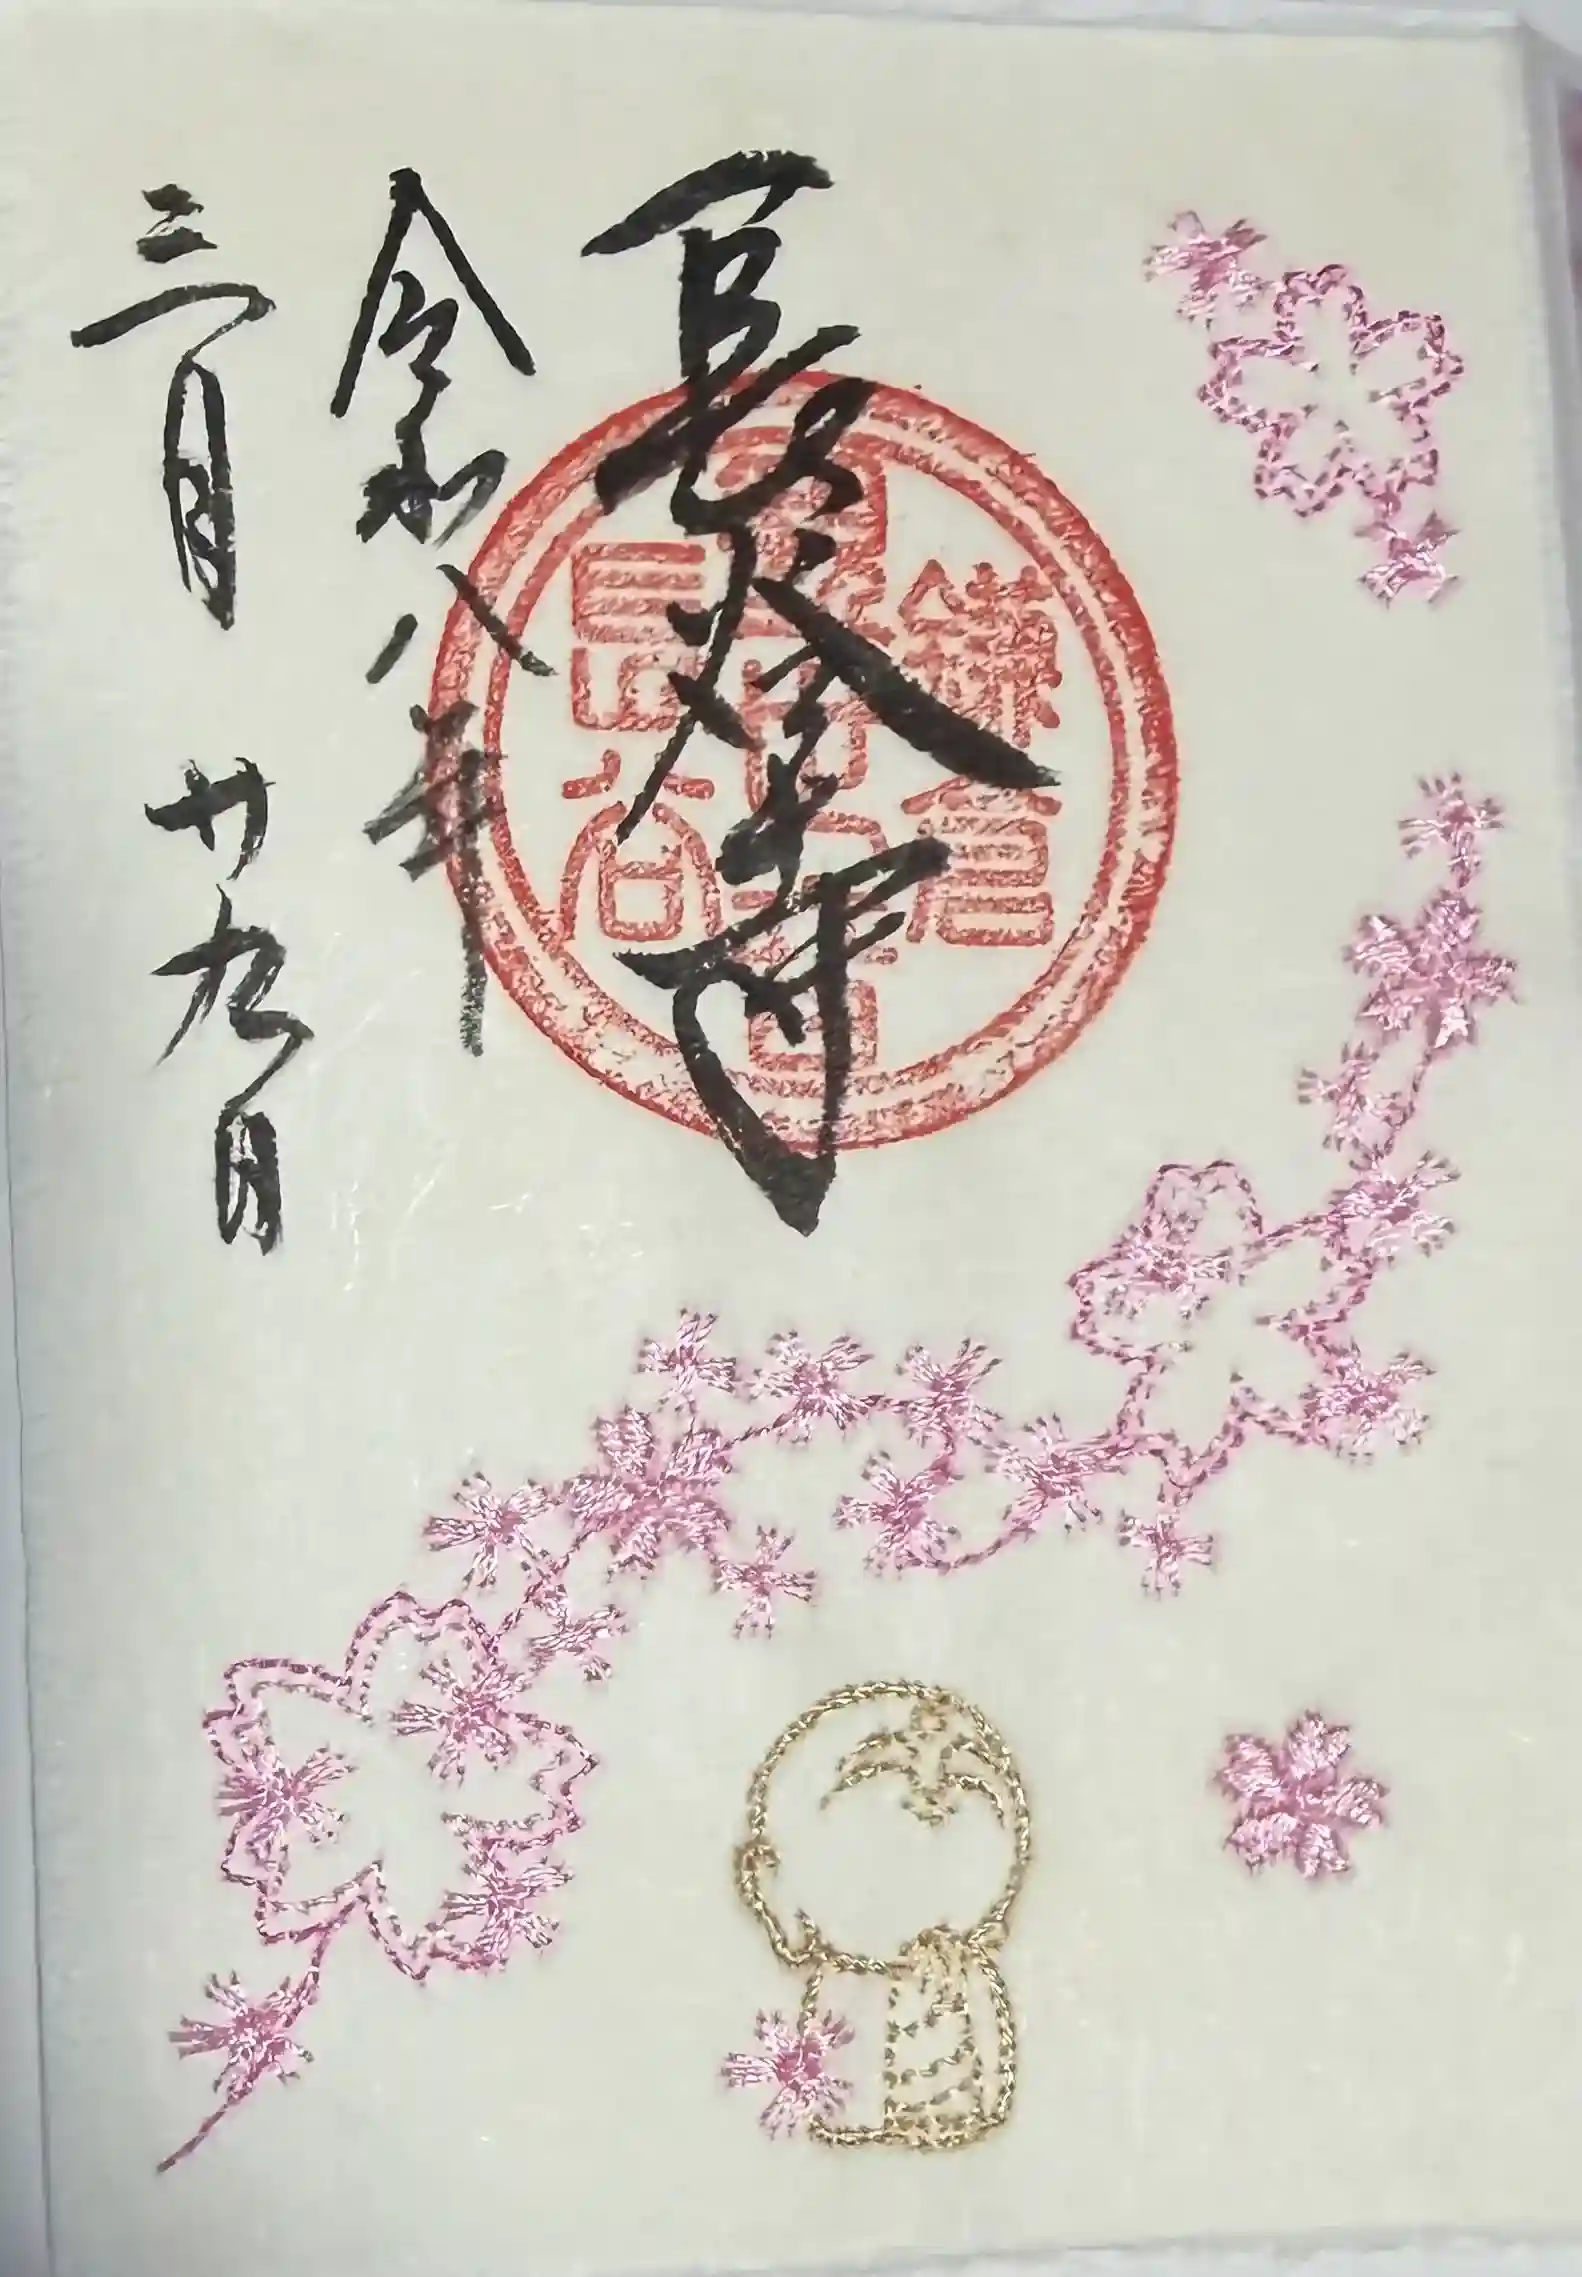 長谷寺
令和八年
三月廿九日
鎌倉
長谷